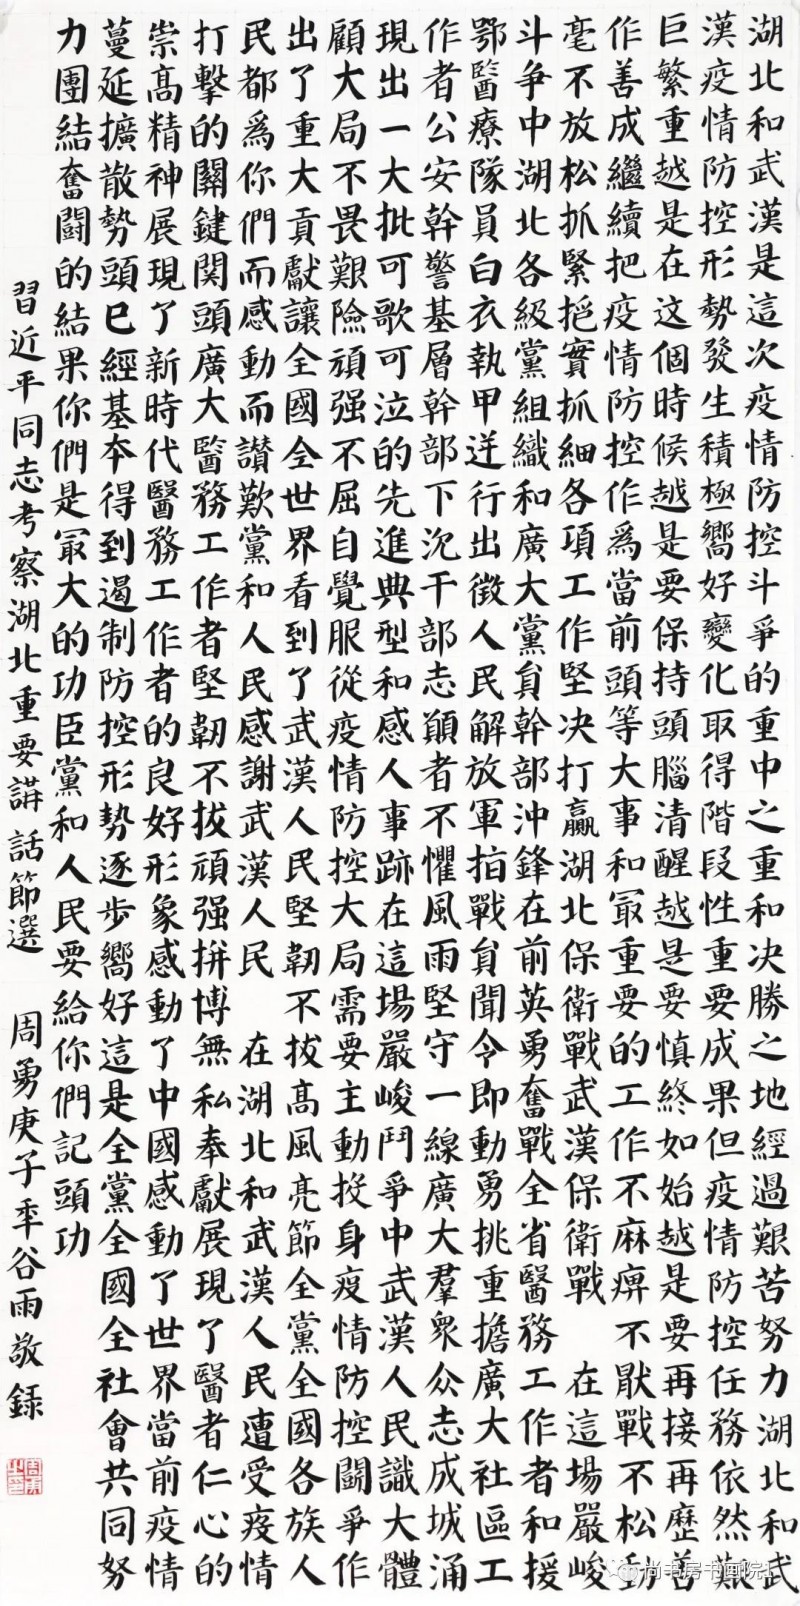 湖北和武漢是這次疫情防控斗爭的重中之重和决勝之地經過艱苦努力湖北和武
漢疫情防控形勢發生積極嚮好變化取得階段性重要成果但疫情防控任務依然艱
巨繁重越是在这個時候越是要保持頭腦清醒越是要慎終如始越是要再接再歷善
作善成繼續把疫情防控作爲當前頭等大事和冣重要的工作不麻痹不猒戰不松動
毫不放松抓緊抱實抓細各項工作堅决打贏湖北保衛戰武漢保衛戰 在這場嚴峻
斗争中湖北各級黨組織和廣大黨負幹部沖鋒在前英勇奮戰全省醫務工作者和援
鄂醫療隊員白衣執甲迸行出徵人民解放軍拍戰負聞令即動勇挑重擔廣大社區工
作者公安幹警基層幹部下沉干部志顚者不懼風雨堅守一線廣大羣衆众志成城涌
現出一大批可歌可泣的先進典型和感人事跡在這場嚴峻鬥爭中武漢人民識大體
顧大局不畏艱險頑强不屈自覺服從疫情防控大局需要主動投身疫情防控鬬爭作
出了重大貢獻讓全國全世界看到了武漢人民堅韌不拔高風亮節全黨全國各族人
民都爲你們而感動而讃歎黨和人民感謝武漢人民 在湖北和武漢人民遭受疫情
打擊的關鍵関頭廣大醫務工作者堅韌不拔頑强拼博無私奉獻展現了醫者仁心的
崇高精神展現了新時代醫務工作者的良好形象感動了中國感動了世界當前疫情
蔓延擴散勢頭已經基本得到遏制防控形勢逐步嚮好這是全黨全國全社會共同努
力團結奮鬪的結果你們是冣大的功臣黨和人民要給你們記頭功
習近平同志考察湖北重要講話節選 周勇庚子秊谷雨敬録
尚书房书画院1